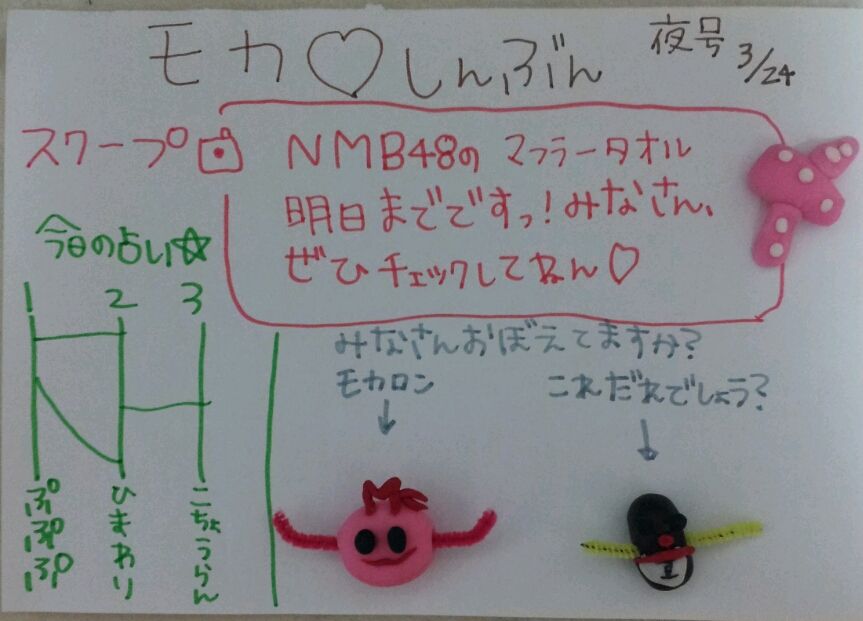 モカ♡しんぶん 夜号 3/24
スクープ
NMB48の マフラータオル
明日までですっ!みなさん、
ぜひチェックしてねん♡
今日の占い☆
1 2 3
ぷぷぷ
ひまわり
こちょうらん
みなさんおぼえてますか?
モカロン
これだれでしょう?